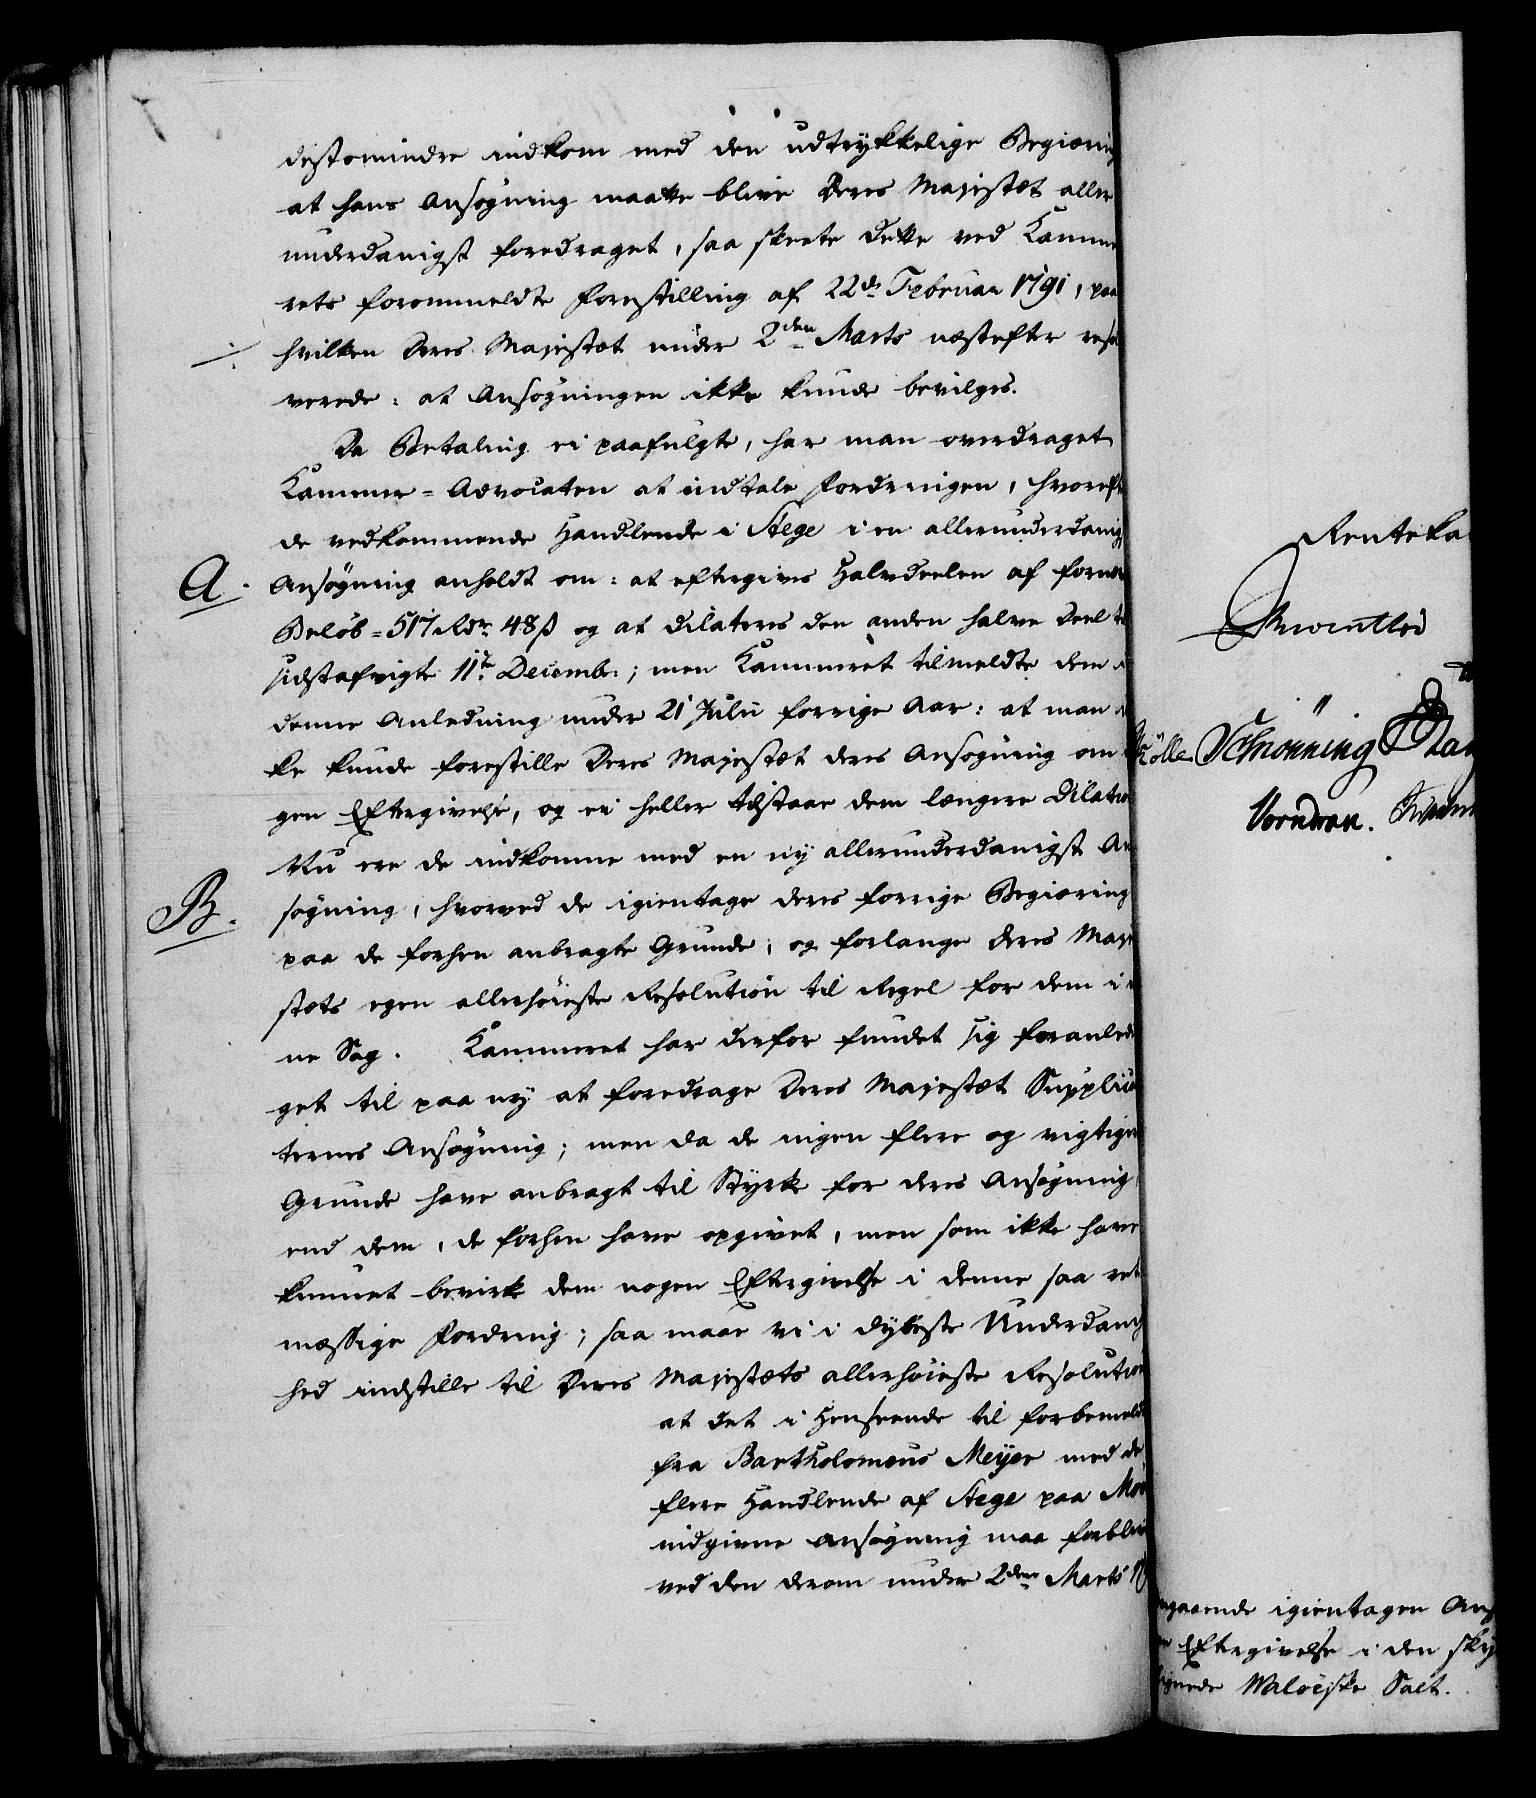 destomindre indkom med den udtrykkelige Begiærin
at hans Ansøgning maatte blive Deres Majestæt aller
underdanigst foredraget, saa skeete dette ved Kamme
rets forommeldte Forestilling af 22de Februar 1791, paa
hvilken Deres Majestæt under 2den Marts næstefter resol
verede: at Ansøgningen ikke kunde bevilges.
Da Betaling ei paafulgte, har man overdraget
Kammer-Advocaten at indtale Fordringen, hvoreft
de vedkommende Handlende i Stege i en allerunderdanig
A.
Ansøgning anholdt om: at eftergives Halvdeelen af form
Beløb = 517 Rdr. 48 ß og at dilateres den anden halve Deel t
sidstafvigte 11te Decembr.; men Kammeret tilmeldte dem i
denne Anledning under 21 Julii forrige Aar: at man i
ke kunde forestille Deres Majestæt deres Ansøgning om
gen Eftergivelse, og ei heller tilstaae dem længere Dilatio
Nu ere de indkomne med en ny allerunderdanigst An
B.
søgning, hvorved de igientage deres forrige Begiæring
paa de forhen anbragte Grunde, og forlange Deres Maje
stæts egen allerhøieste Resolution til Regel for dem i
ne Sag. Kammeret har derfor fundet sig foranled
get til paa ny at foredrage Deres Majestæt Supplica
ternes Ansøgning; men da de ingen flere og vigtige
Grunde have anbragt til Styrke for deres Ansøgning,
end dem, de forhen have opgivet, men som ikke have
kunnet bevirke dem nogen Eftergivelse i denne saa ret
mæssige Fordring; saa maae vi i dybeste Underdanig
hed indstille til Deres Majestæts allerhøieste Resolution
at det i Henseende til forbemeldt
fra Bartholomæus Meyer med de
flere Handlende af Stege paa Møe
indgivne Ansøgning maa forbliv
ved den derom under 2den Marts 17
Renteka
Schiønning
Vorndran.
ngaaende igientagen Ans
Eftergivelse i den sky
Walöeske Salt.